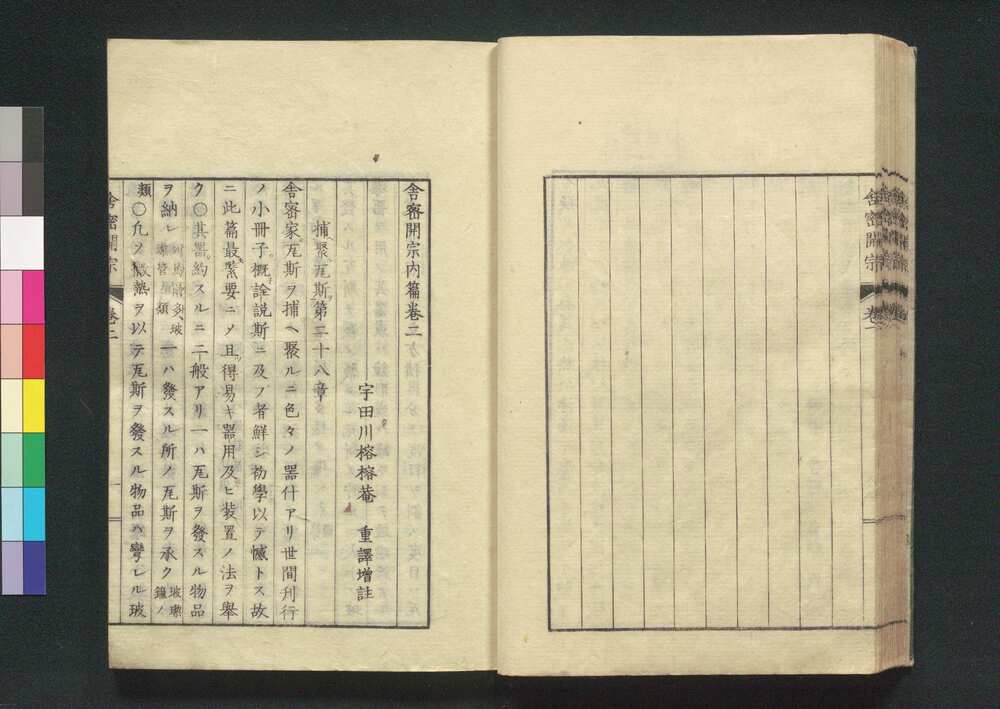 舎密開宗
舎密開宗内篇巻二
宇田川榕榕菴 重譯増註
捕聚瓦斯第二十八章
舎密家瓦斯ヲ捕ヘ聚ルニ色々ノ器什アリ世間刋行
ノ小冊子概詮説斯ニ及フ者鮮シ初學以テ憾トス故
ニ此篇最緊要ニノ且得易キ器用及ヒ装置ノ法ヲ舉
ク〇其器約スルニ二般アリ一ハ瓦斯ヲ發スル物品
ヲ納レ 一ハ發スル所ノ瓦斯ヲ承ク 玻瓈鐘ノ
類〇凢ソ微熱ヲ以テ瓦斯ヲ發スル物品ハ彎レル玻
舎密開宗 巻二